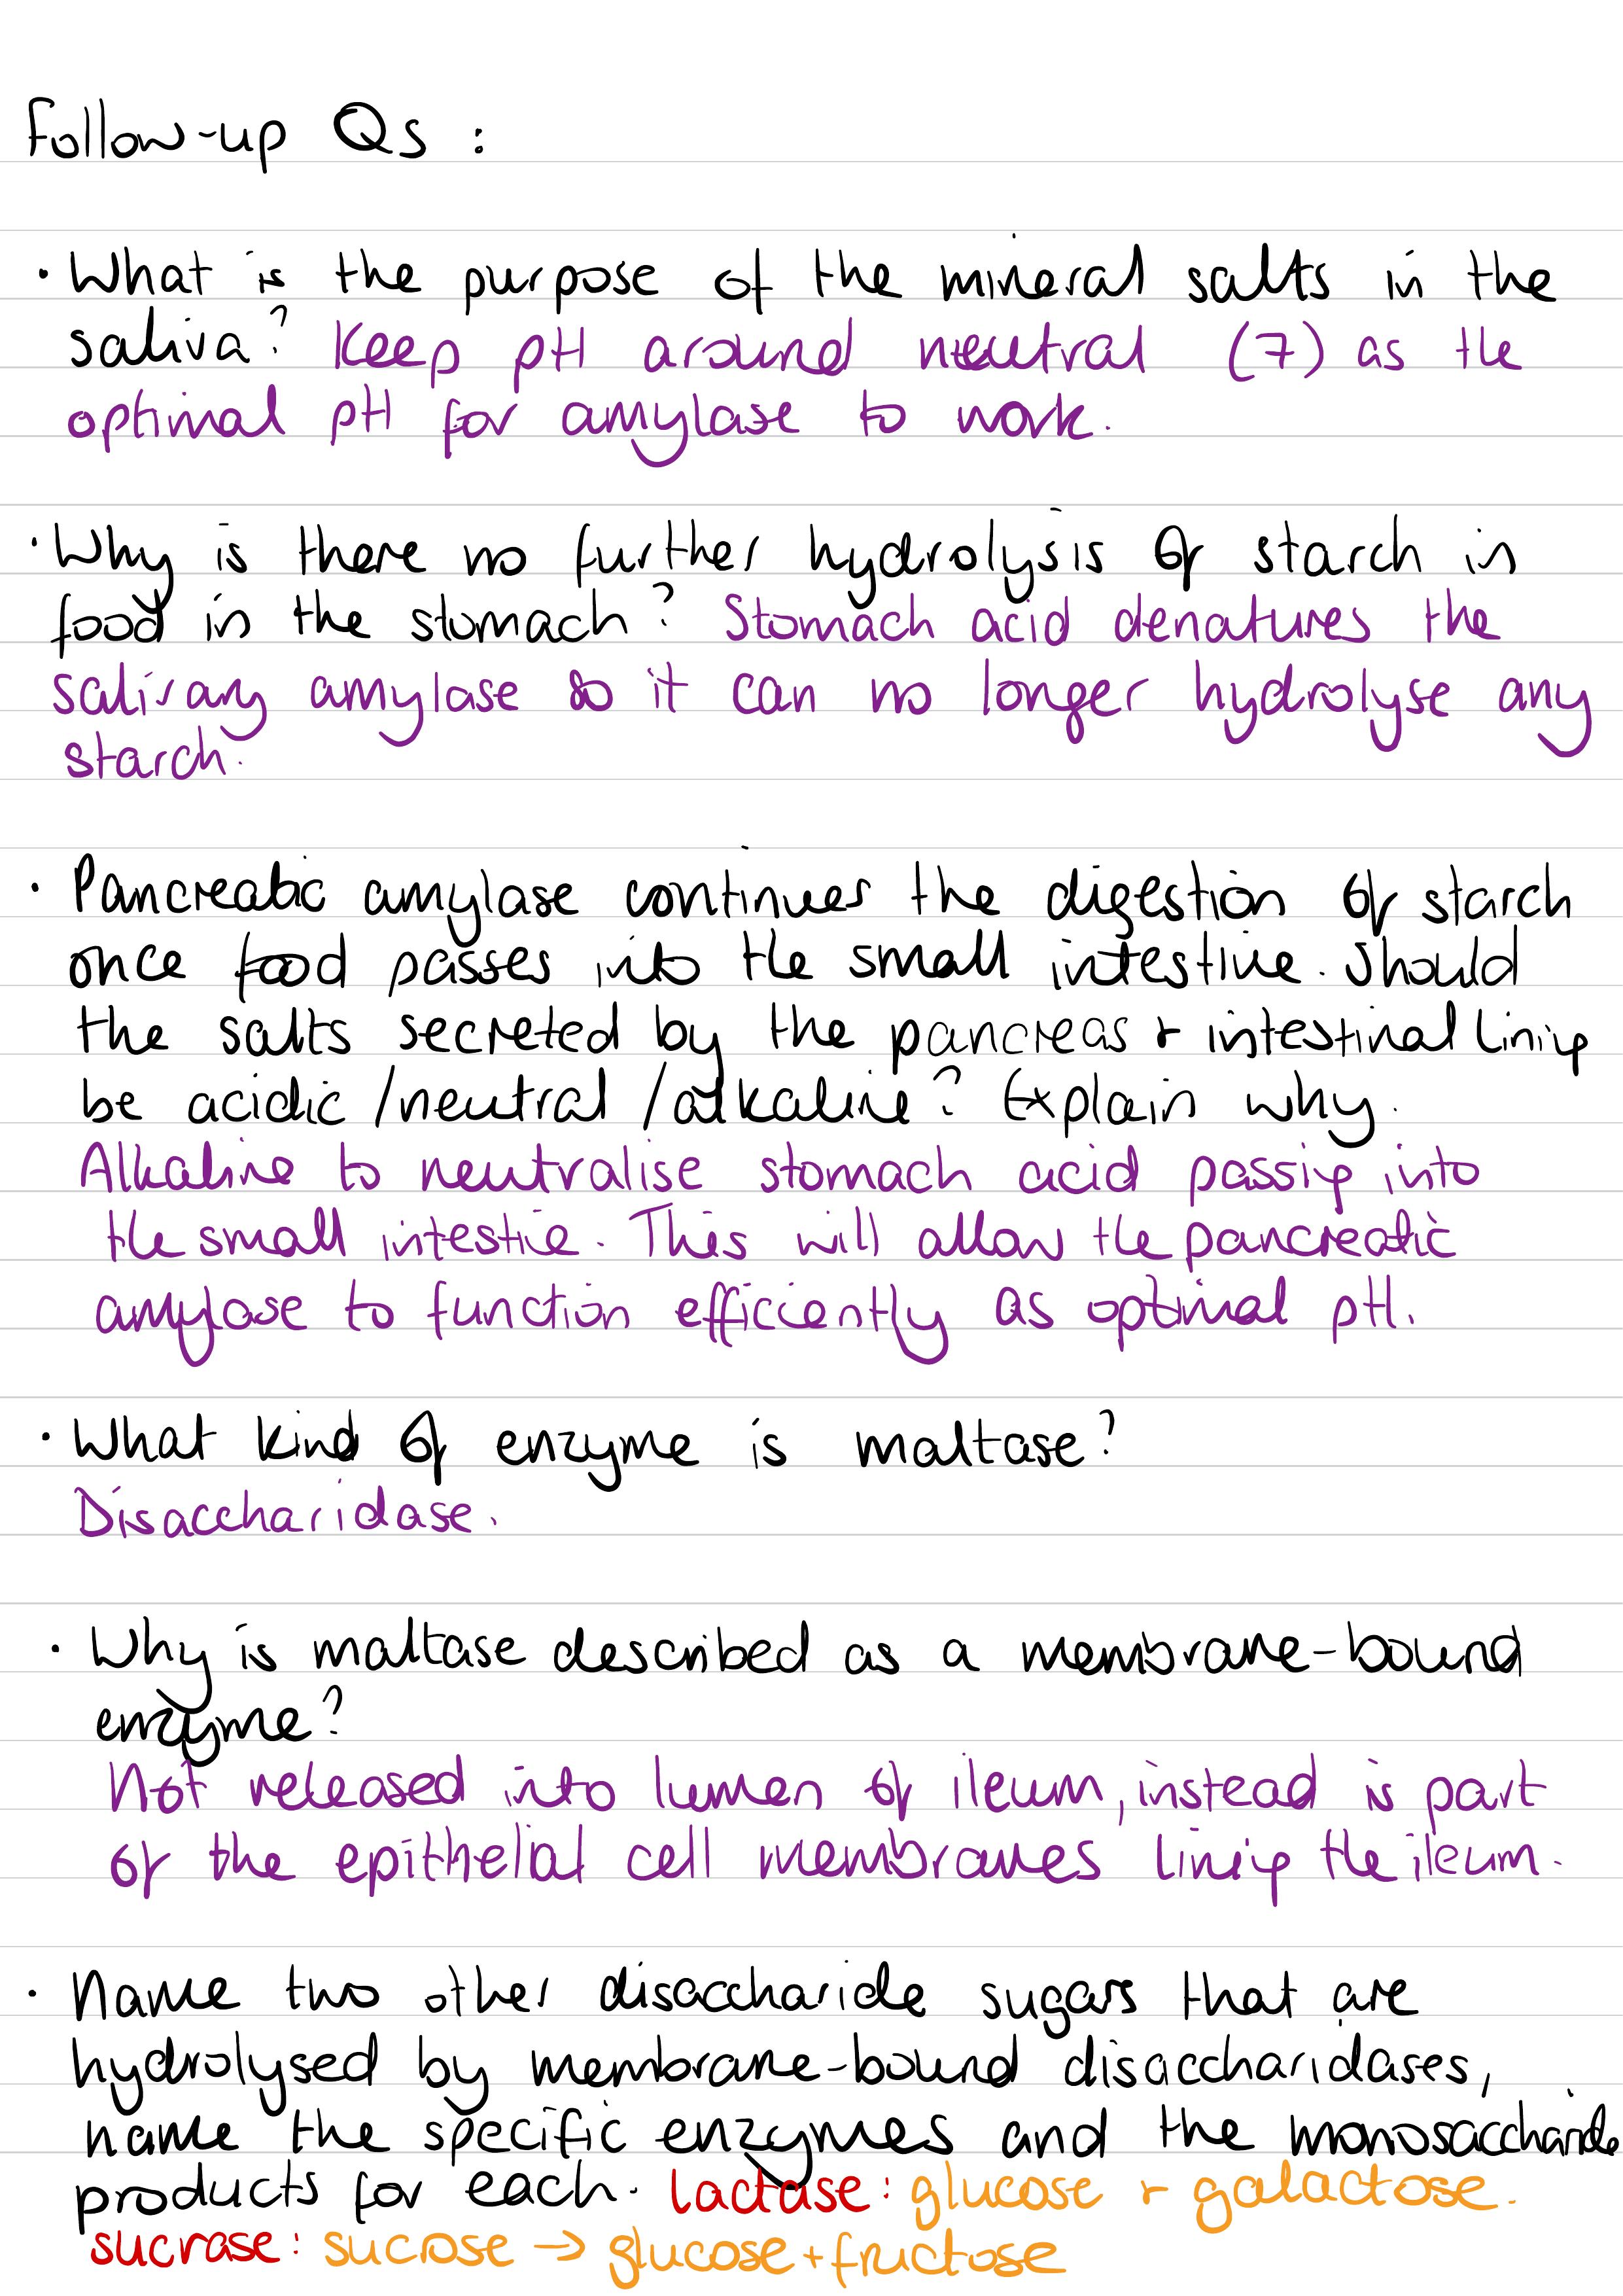 Follow-up Qs :
· What is the purpose of the mineral salts in the
saliva? Keep pH around neutral (7) as the
optimal pH for amylase to work.
· Why is there no further hydrolysis of starch in
food in the stomach? Stomach acid denatures the
salivary amylase so it can no longer hydrolyse any
starch.
· Pancreatic amylase continues the digestion of starch
once food passes into the small intestine. Should
the salts secreted by the pancreas + intestinal lining
be acidic /neutral /alkaline? Explain why.
Alkaline to neutralise stomach acid passing into
the small intestine. This will allow the pancreatic
amylase to function efficiently as optimal pH.
· What kind of enzyme is maltase?
Disaccharidase.
· Why is maltase described as a membrane-bound
enzyme?
Not released into lumen of ileum, instead is part
of the epithelial cell membranes lining the ileum.
· Name two other disaccharide sugars that are
hydrolysed by membrane-bound disaccharidases,
name the specific enzymes and the monosaccharide
products for each. lactase: glucose + galactose.
sucrase: sucrose → glucose + fructose